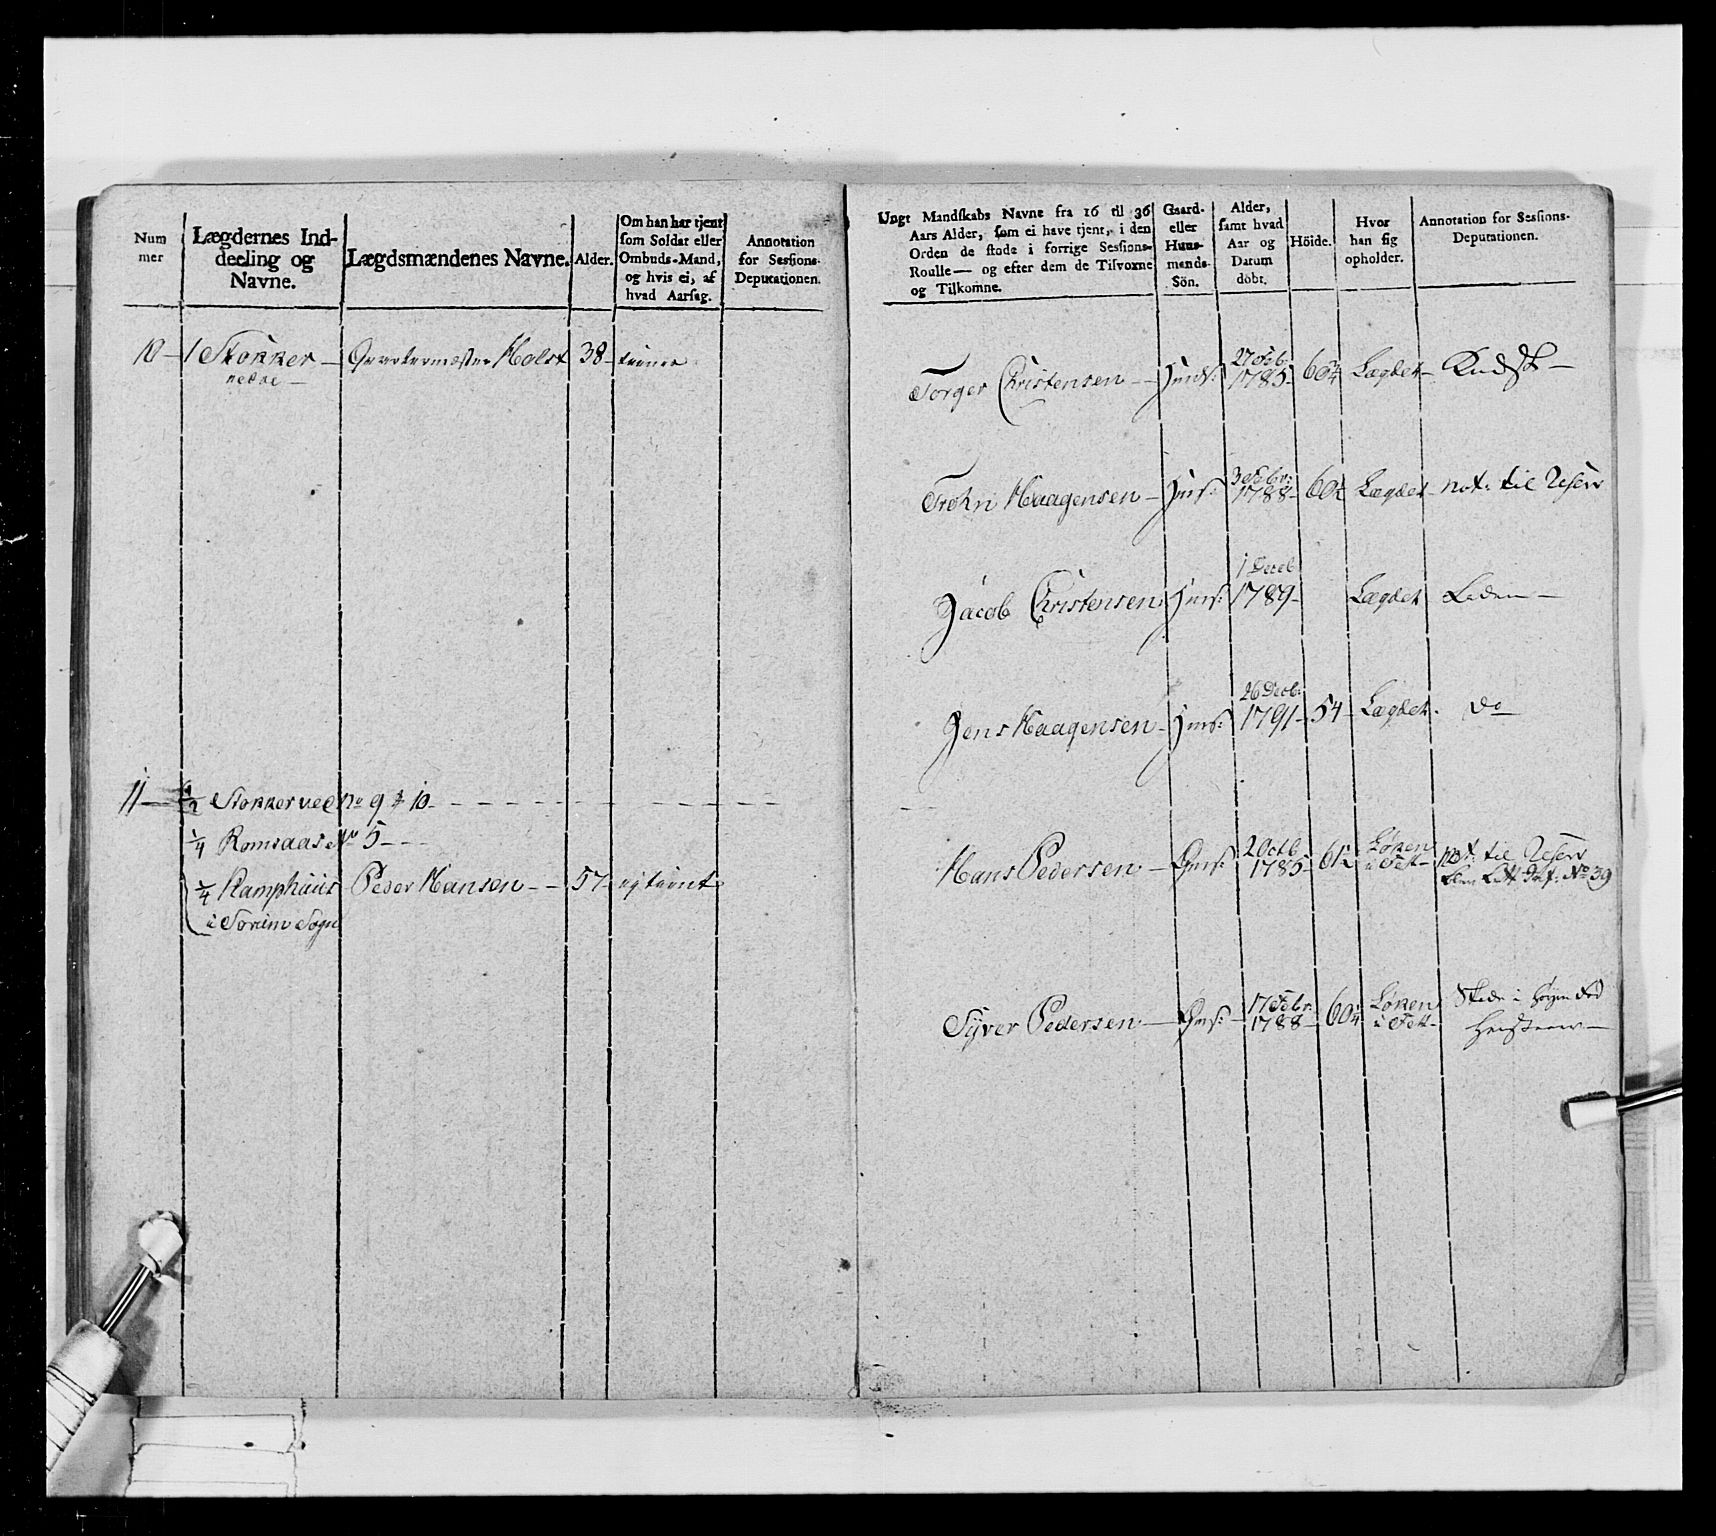 Num
mer
Lægdernes Ind-
deeling og
Navne.
Lægdsmændenes Navne.
Alder.
Om han har tjent
som Soldat eller
Ombuds-Mand,
og hvis ei, af
hvad Aarsag.
Annotation
for Sessions-
Deputationen.
10 — 1 Stokker — Holst 38 —
nedre —
11 — 1/2 Stokker ved No 9 & 10 —
1/4 Romsaas No 5 — —
1/4 Kamphuus Peder Hansen — — 57 — ey tient
i Sørum Sogn
Ungt Mandskabs Navne fra 16 til 36
Aars Alder, som ei have tjent, i den
Orden de stode i forrige Sessions-
Roulle — og efter dem de Tilvoxne
og Tilkomne.
Gaard-
eller
Huus-
mands-
Sön.
Alder,
samt hvad
Aar og
Datum
döbt.
Höide.
Hvor
han sig
opholder.
Annotation for Sessions-
Deputationen.
27 Feb:
Torger Christensen — 1785 — 60 3/4 Lægdet —
3 Febr:
Trohn Haagensen — Huus: 1788 — 60 1/2 Lægdet — not: til Reserv
1 Deceb
Jacob Christensen Huus: 1789 — Lægdet Liden —
26 Decb:
Jens Haagensen — Huus: 1791 — 54 — Lægdet — do
2 Octb Løken
Hans Pedersen — Gms: 1785 — 61 1/2 i Fett — Not: til Reserv
No 39
17 Febr: Løken
Syver Pedersen — Gms: — 1788 — 60 1/4 i Fett —